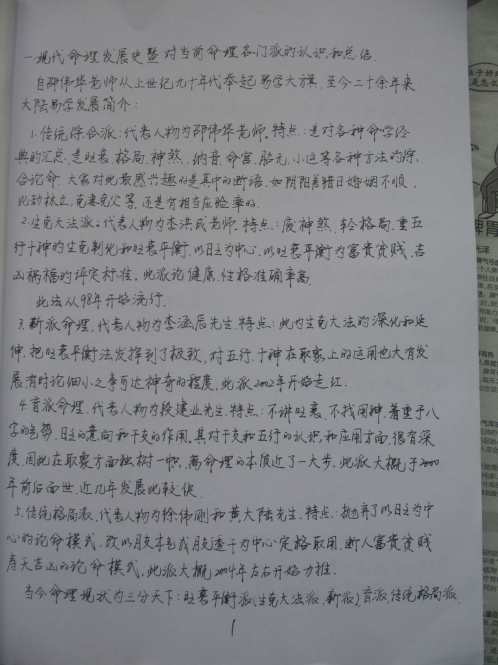 一.现代命理发展史暨对当前命理各门派的认识和总结
自邵伟华老师从上世纪九十年代举起易学大旗,至今二十余年来
大陆易学发展简介:
1.传统综合派:代表人物为邵伟华老师,特点:是对各种命学经
典的汇总,是旺衰、格局、神煞、纳音、命宫、胎元、小运等各种方法的综
合论命.大家对此最感兴趣的是其中的断语,如阴阳差错日婚姻不顺,
枭神,克妻克父等,还是有相当应验率的.
2.生克大法派:代表人物为李洪成老师,特点:废神煞,轻格局,重五
行十神的生克制化和旺衰平衡,以日主为中心,以旺衰平衡为富贵贫贱、吉
凶祸福的评定标准,此派论健康、性格准确率高.
此法从98年开始流行.
3.新派命理,代表人物为李涵辰先生,特点:此为生克大法的深化和延
伸,把旺衰平衡法发挥到了极致,对五行、十神在取象上的运用也大有发
展,有时论细小之事可达神奇的程度,此派2002年开始走红.
4.盲派命理,代表人物为段建业先生,特点:不讲旺衰,不找用神,着重于八
字的气势,日主的意向和干支的作用,其对干支和五行的认识和应用方面,很有深
度,因此在取象方面独树一帜,离命理的本质近了一大步.此派大概于2000
年前后面世,近几年发展比较快.
5.传统格局派,代表人物为徐伟刚和黄大陆先生,特点:抛弃了以日主为中
心的论命模式,改以月支本气或月支透干为中心定格取用,断人富贵贫贱
寿夭吉凶的论命模式,此派大概2004年左右开始力推.
当今命理现状为三分天下:旺衰平衡派(生克大法派、新派)、盲派、传统格局派.
1